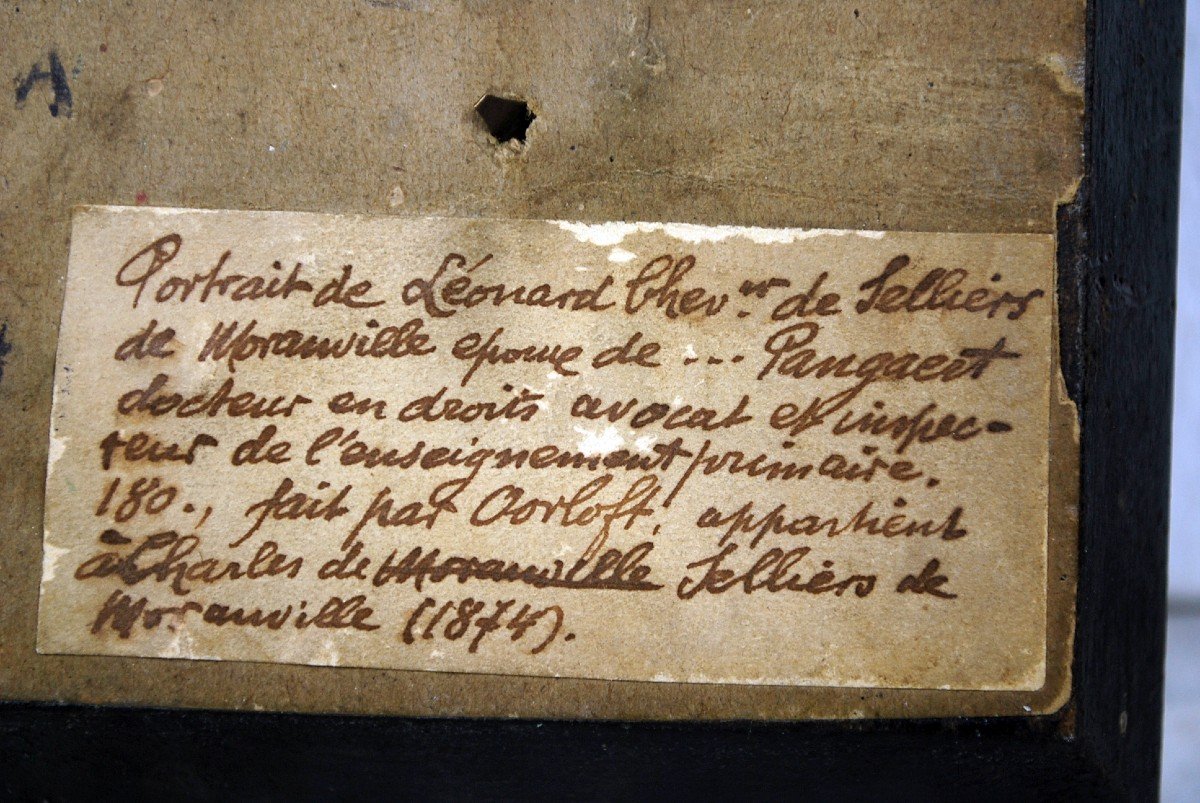 Portrait de Léonard Chev.er de Selliers
de Moranville epoux de ... Pangaert
docteur en droits avocat et inspec-
teur de l'enseignement primaire.
180., fait par Oorloft, appartient
à Charles de Moranville Selliers de
Moranville (1874).